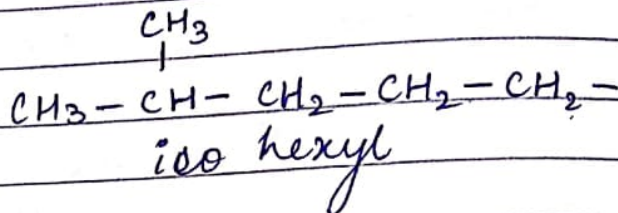 CH3
CH3 - CH - CH2 - CH2 - CH2 -
iso hexyl